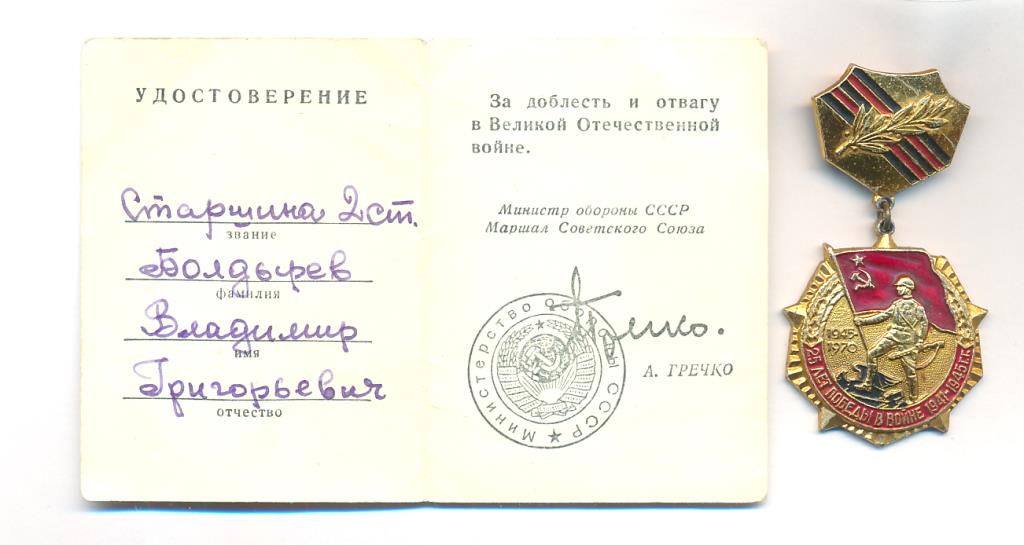 УДОСТОВЕРЕНИЕ
Старшина 2 ст.
звание
Болдырев
фамилия
Владимир
имя
Григорьевич
отчество
За доблесть и отвагу
в Великой Отечественной
войне.
Министр обороны СССР
Маршал Советского Союза
Министерство Обороны СССР
А. ГРЕЧКО
1945
1970
25 ЛЕТ ПОБЕДЫ В ВОЙНЕ 1941-1945 ГГ.